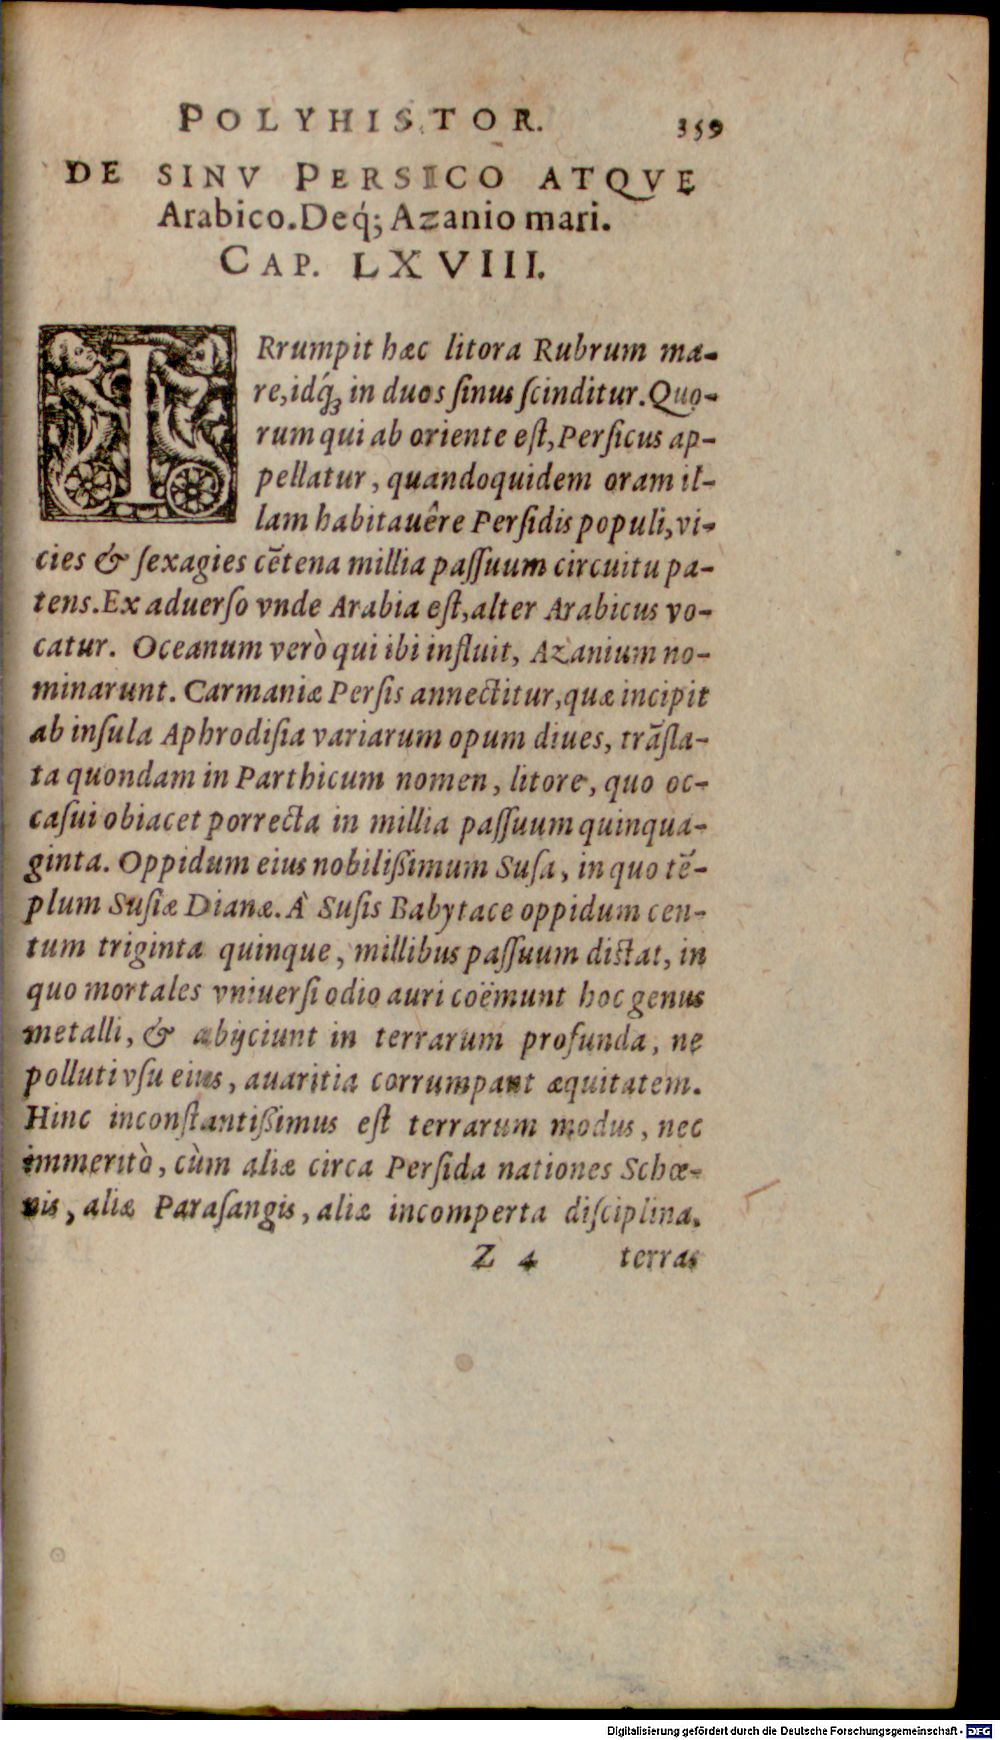 POLYHISTOR. 359
DE SINV PERSICO ATQVE
Arabico. Deq́; Azanio mari.
CAP. LXVIII.
IRrumpit hæc litora Rubrum ma-
re, idq́; in duos ſinus ſcinditur. Quo-
rum qui ab oriente eſt, Perſicus ap-
pellatur, quandoquidem oram il-
lam habitauêre Perſidis populi, vi-
cies & ſexagies cētena millia paſſuum circuitu pa-
tens. Ex aduerſo vnde Arabia eſt, alter Arabicus vo-
catur. Oceanum verò qui ibi influit, Azanium no-
minarunt. Carmaniæ Perſis annectitur, quæ incipit
ab inſula Aphrodiſia variarum opum diues, trāſla-
ta quondam in Parthicum nomen, litore, quo oc-
caſui obiacet porrecta in millia paſſuum quinqua-
ginta. Oppidum eius nobilißimum Suſa, in quo tē-
plum Suſiæ Dianæ. À Suſis Babytace oppidum cen-
tum triginta quinque, millibus paſſuum diſtat, in
quo mortales vniuerſi odio auri coëmunt hoc genus
metalli, & abijciunt in terrarum profunda, ne
polluti vſu eius, auaritia corrumpant æquitatem.
Hinc inconſtantißimus eſt terrarum modus, nec
immeritò, cùm aliæ circa Perſida nationes Schœ-
nis, aliæ Paraſangis, aliæ incomperta diſciplina.
Z 4 terras
Digitalisierung gefördert durch die Deutsche Forschungsgemeinschaft - DFG